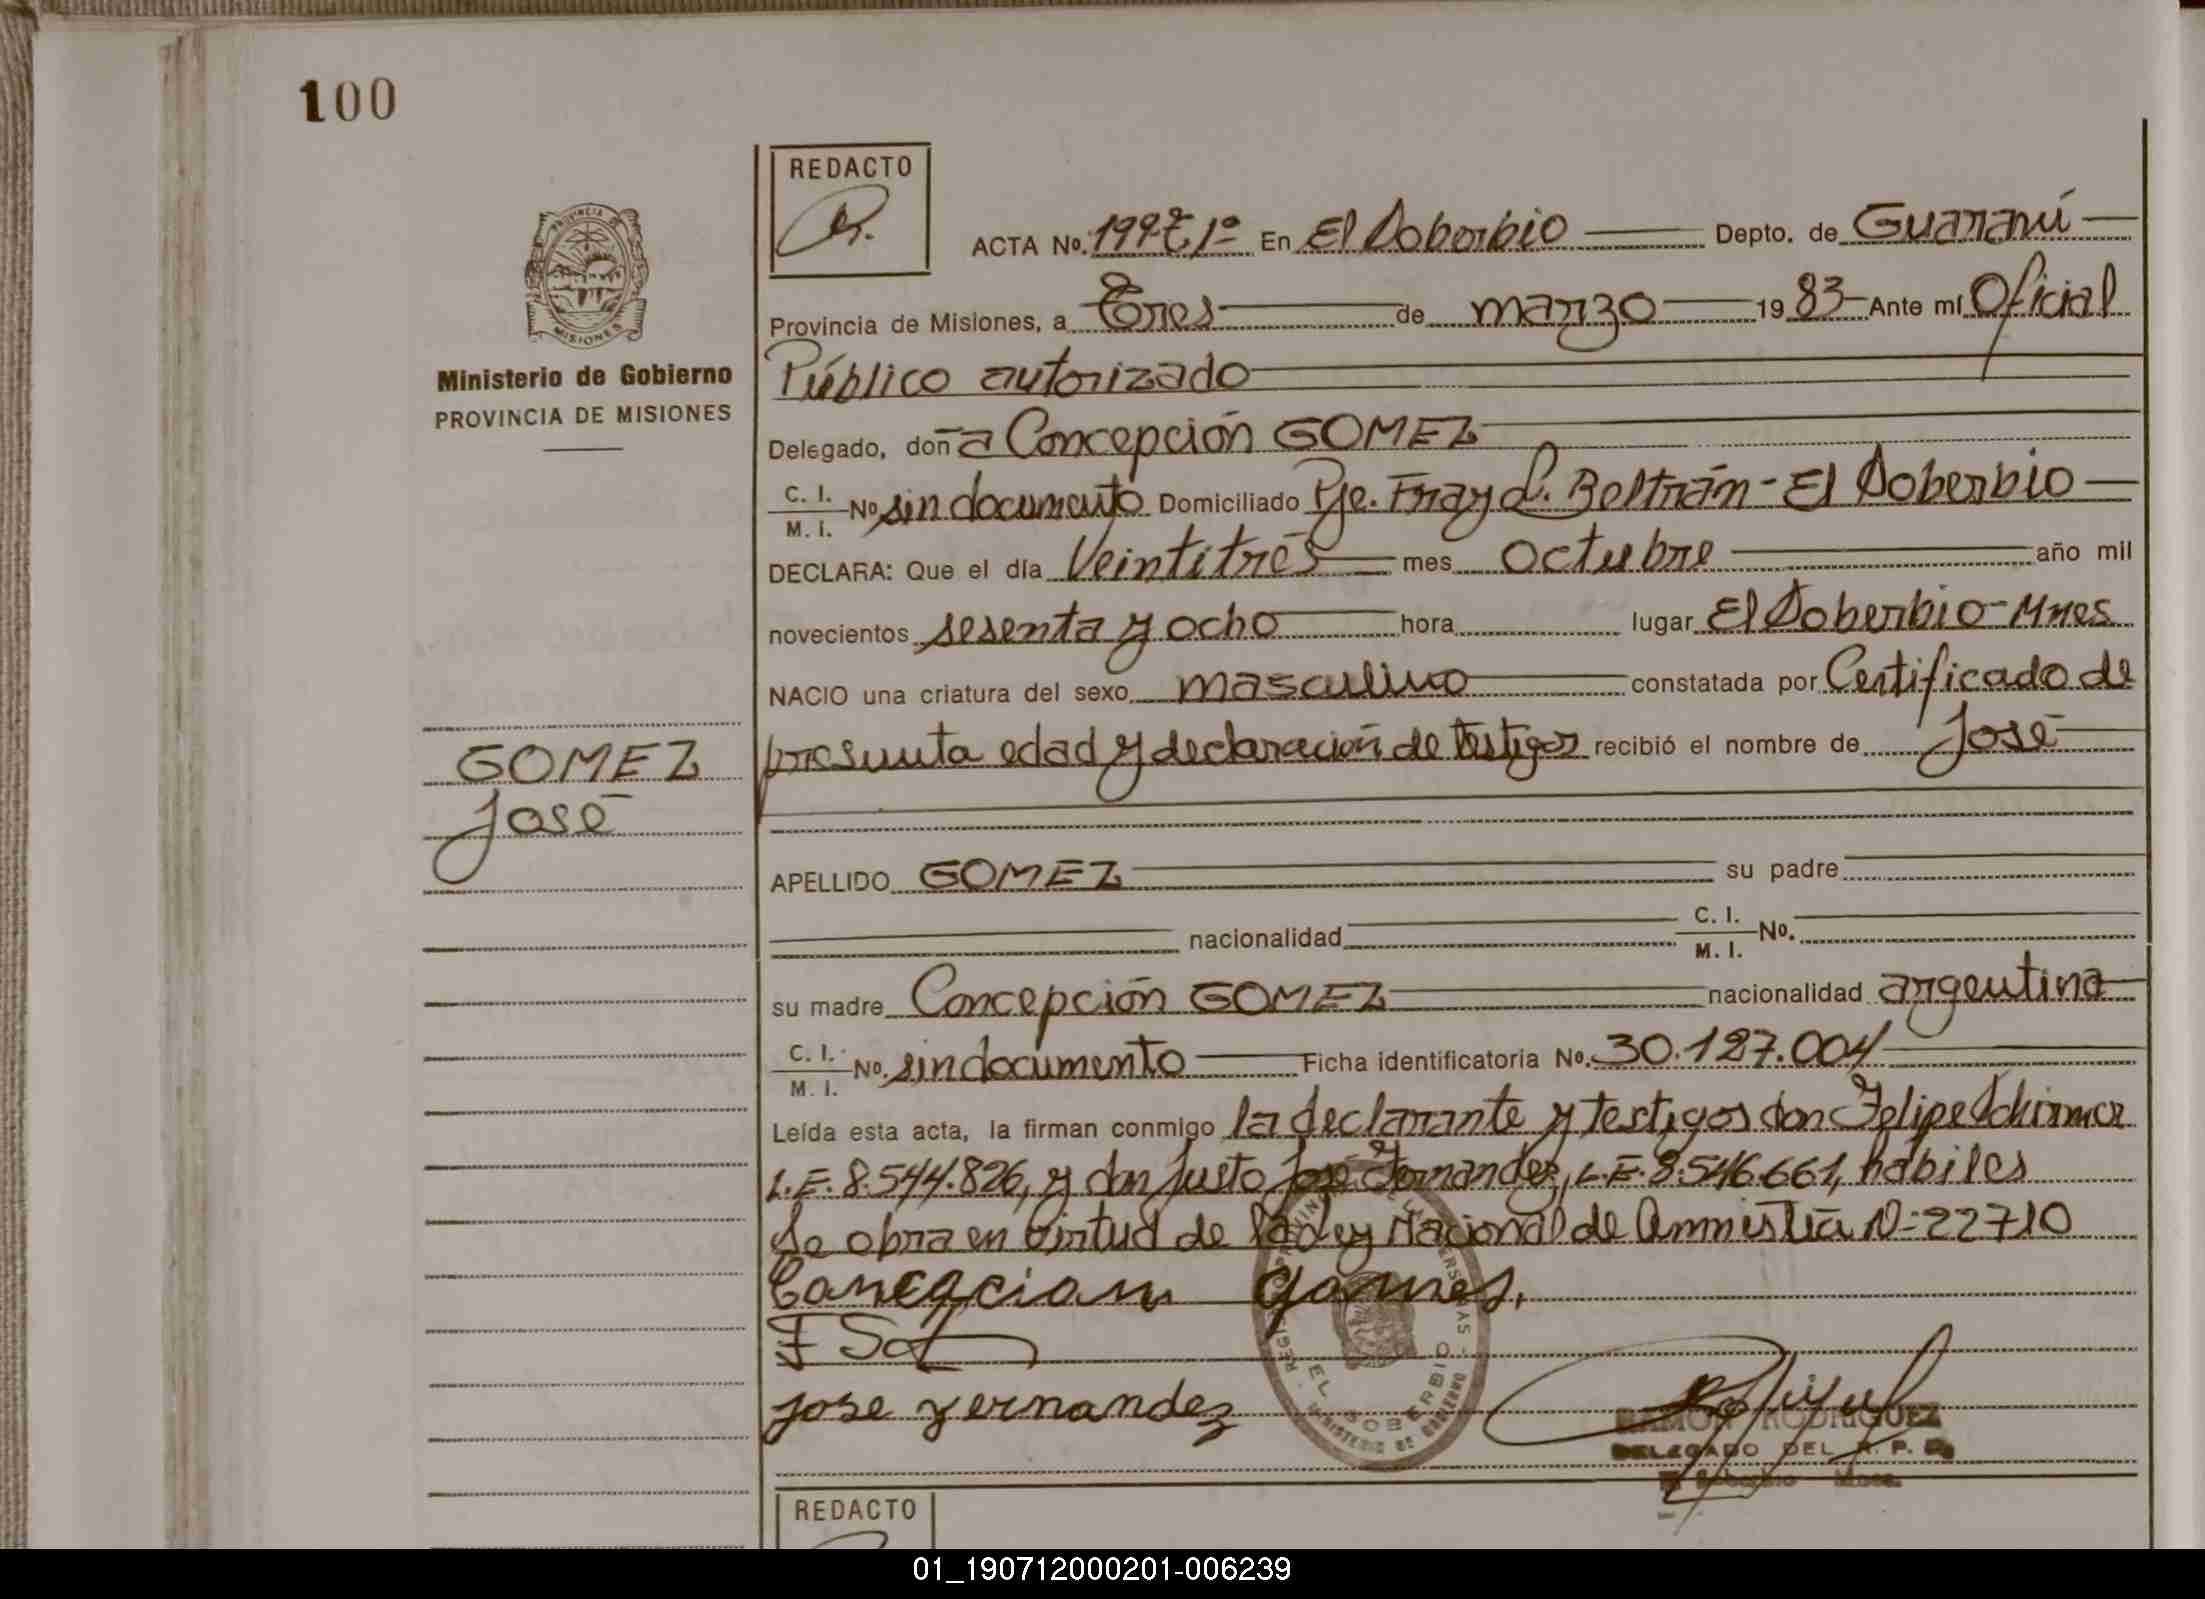 100
REDACTO
ACTA No. 199 T. 1º En El Soberbio Depto. de Guaraní
Provincia de Misiones, a Tres de marzo 19 83 Ante mí Oficial
Público autorizado
Ministerio de Gobierno
PROVINCIA DE MISIONES
Delegado, doña Concepción GOMEZ
C. I.
M. I. No sin documento Domiciliado Pje. Fray L. Beltrán - El Soberbio
DECLARA: Que el día Veintitrés mes octubre año mil
novecientos sesenta y ocho hora lugar El Soberbio - Mnes
NACIO una criatura del sexo masculino constatada por Certificado de
presunta edad y declaración de testigos recibió el nombre de José
GOMEZ
José
APELLIDO GOMEZ su padre
nacionalidad C. I.
M. I. No.
su madre Concepción GOMEZ nacionalidad argentina
C. I.
M. I. No. sin documento Ficha identificatoria No. 30.127.004
Leída esta acta, la firman conmigo la declarante y testigos don Felipe Schirmer
L.E. 8.544.826, y don Justo José Fernandez, L.E. 8.546.661, hábiles
Se obra en virtud de la Ley Nacional de Amnistía Nº 22710
Concepcion Gomes.
Jose Fernandez
EL SOBERBIO
MINISTERIO DE GOBIERNO
RAMON RODRIGUEZ
DELEGADO DEL R. P. P.
El Soberbio Mnes.
REDACTO
01_190712000201-006239